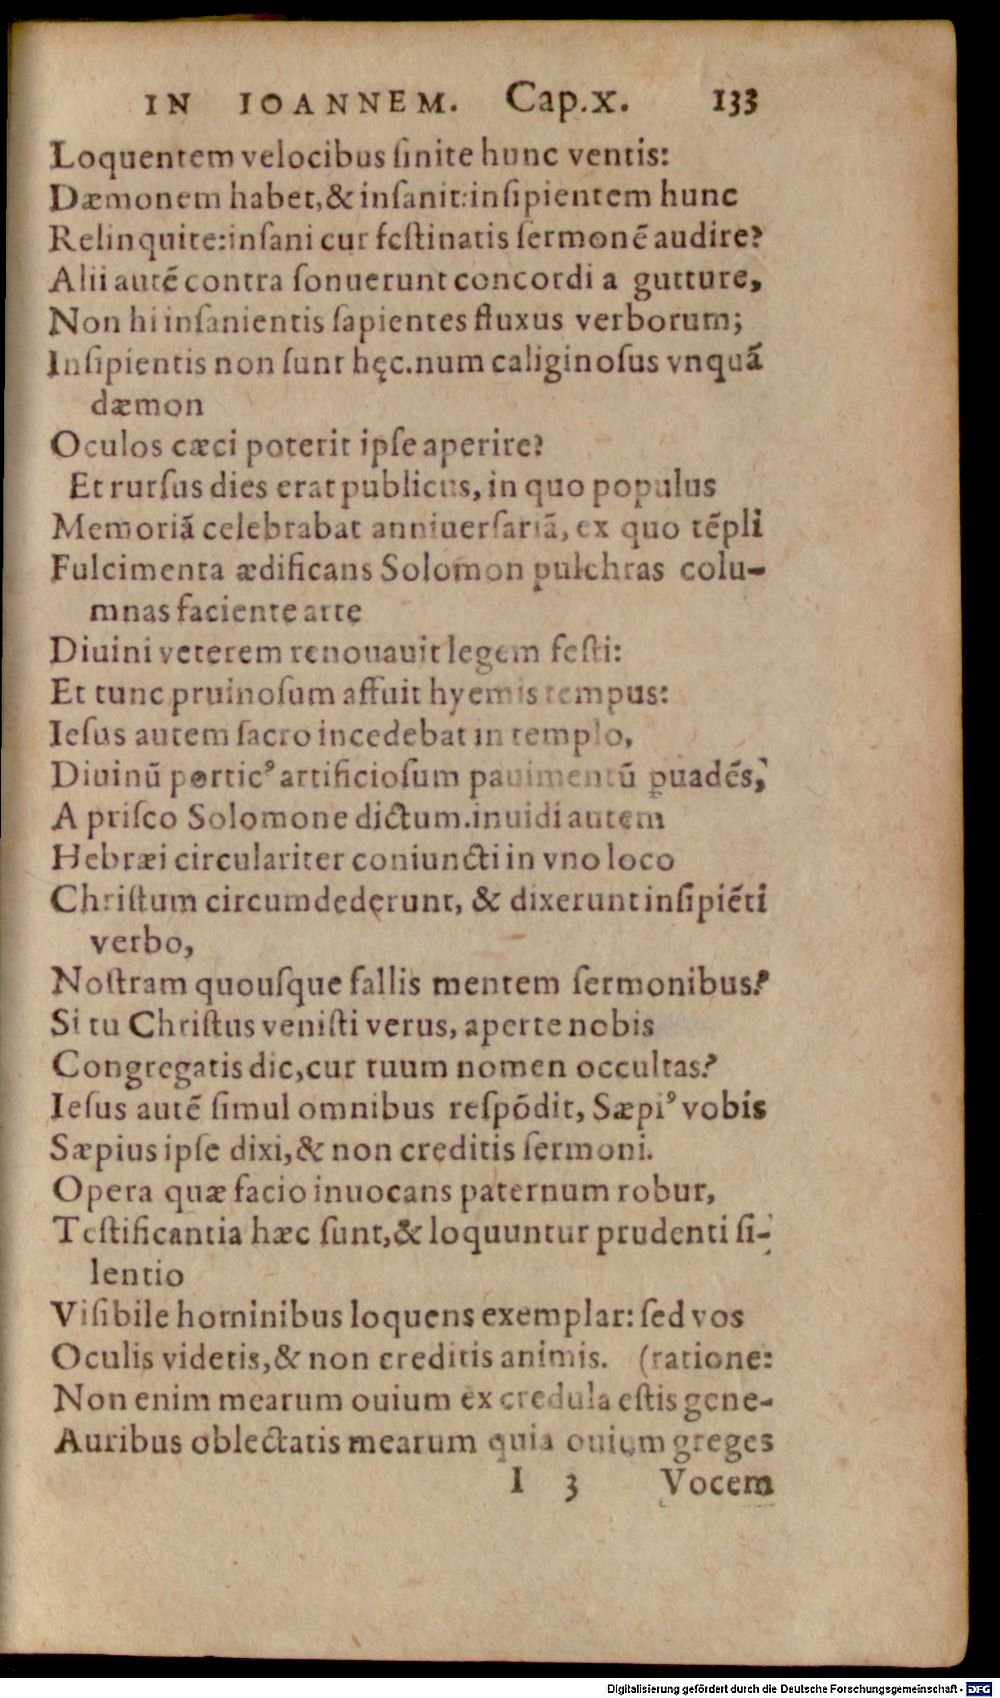 IN IOANNEM. Cap.x. 133
Loquentem velocibus ſinite hunc ventis:
Dæmonem habet,& inſanit:inſipientem hunc
Relinquite:inſani cur feſtinatis ſermonē audire?
Alii autē contra ſonuerunt concordi a gutture,
Non hi inſanientis ſapientes fluxus verborum;
Inſipientis non ſunt hęc.num caliginoſus vnquā
dæmon
Oculos cæci poterit ipſe aperire?
Et rurſus dies erat publicus, in quo populus
Memoriā celebrabat anniuerſariā, ex quo tēpli
Fulcimenta ædificans Solomon pulchras colu-
mnas faciente arte
Diuini veterem renouauit legem feſti:
Et tunc pruinoſum affuit hyemis tempus:
Ieſus autem ſacro incedebat in templo,
Diuinū porticꝰ artificioſum pauimentū ꝑuadēs,
A priſco Solomone dictum.inuidi autem
Hebræi circulariter coniuncti in vno loco
Chriſtum circumdederunt, & dixerunt inſipiēti
verbo,
Noſtram quouſque fallis mentem ſermonibus?
Si tu Chriſtus veniſti verus, aperte nobis
Congregatis dic,cur tuum nomen occultas?
Ieſus autē ſimul omnibus reſpōdit, Sæpiꝰ vobis
Sæpius ipſe dixi,& non creditis ſermoni.
Opera quæ facio inuocans paternum robur,
Teſtificantia hæc ſunt,& loquuntur prudenti ſi-
lentio
Viſibile hominibus loquens exemplar: ſed vos
Oculis videtis,& non creditis animis. (ratione:
Non enim mearum ouium ex credula eſtis gene-
Auribus oblectatis mearum quia ouium greges
I 3 Vocem
Digitalisierung gefördert durch die Deutsche Forschungsgemeinschaft - DFG